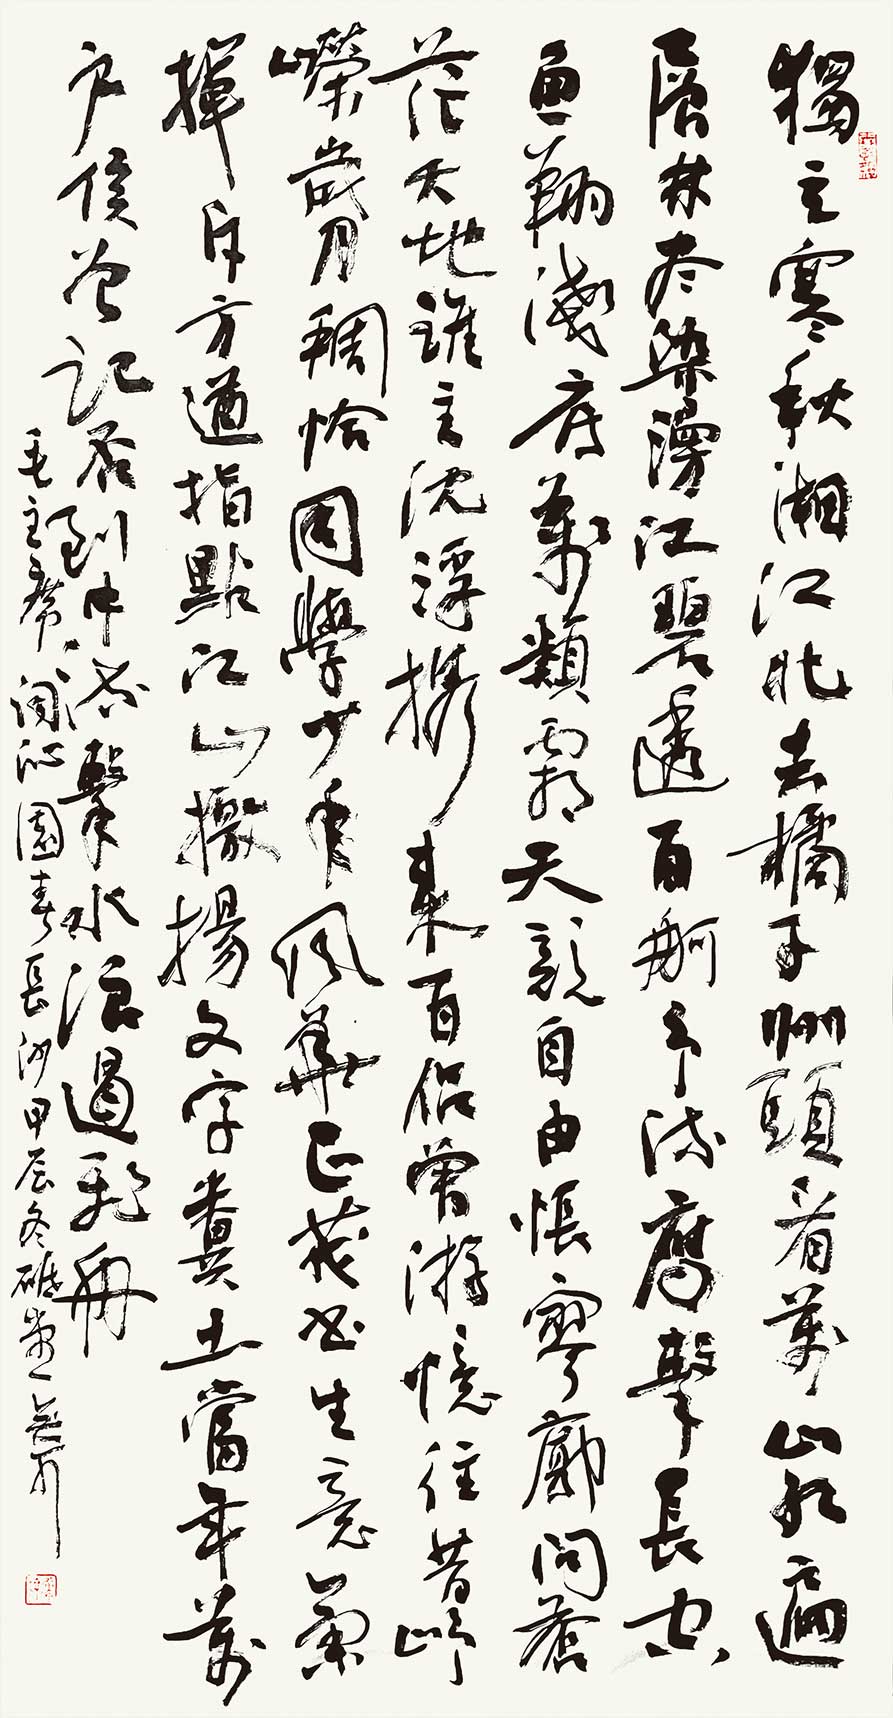 獨立寒秋湘江北去橘子洲頭看萬山紅遍
層林尽染漫江碧透百舸爭流鷹擊長空
魚翔淺底萬類霜天競自由悵寥廓問蒼
茫大地誰主沈浮携來百侣曾游憶往昔崢
嶸歲月稠恰同學少年風華正茂書生意氣
揮斥方遒指點江山激揚文字糞土當年萬
户侯曾記否到中流擊水浪遏飛舟
毛主席詞沁園春長沙甲辰冬